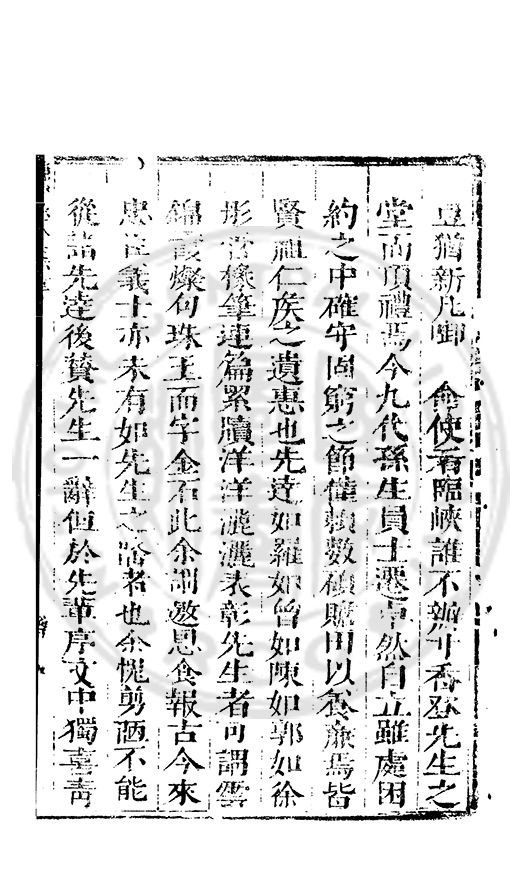 豆猶新凡啣 命使者臨峽誰不辦寸香登先生之
堂而頂禮焉今九代孫生員士遷卓然自立雖處困
約之中確守固窮之節僅賴數碩贍田以養廉焉皆
賢祖仁侯之遺惠也先達如羅如曾如陳如郭如徐
彤管椽筆連篇累牘洋洋灑灑表彰先生者可謂雲
錦霞燦句珠玉而字金石此余謂邀恩食報古今來
忠臣義士亦未有如先生之隆者也余愧剪陋不能
從諸先達後贊先生一辭但於先輩序文中獨喜青